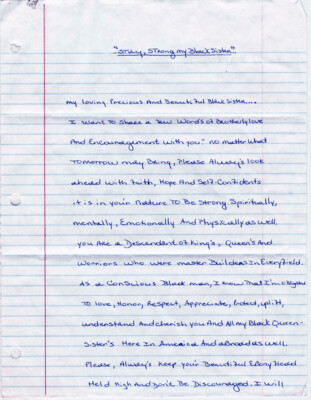 "Stay, Strong my Black Sister"
my Loving Precious And Beautiful Black Sister....
I Want To Share a Few Words of Brotherly Love
And Encouragement With you." no matter What
Tomorrow may Bring, Please Alway's look
ahead With Faith, Hope And Self-Confidents
it is in your Nature To Be Strong Spiritually,
mentally, Emotionally And Physically as well.
you Are a Descendant of King's, Queen's And
Warriors Who were master Builders In Every Field.
As a Conscious Black man, I Know That I'm obligated
To love, Honor, Respect, Appreciate, Protect, uplift,
understand And cherish you And All my Black Queen-
Sister's Here In America and abroad as well.
Please, Alway's Keep your Beautiful Ebony Head
Held High And Don't Be Discouraged. I Will